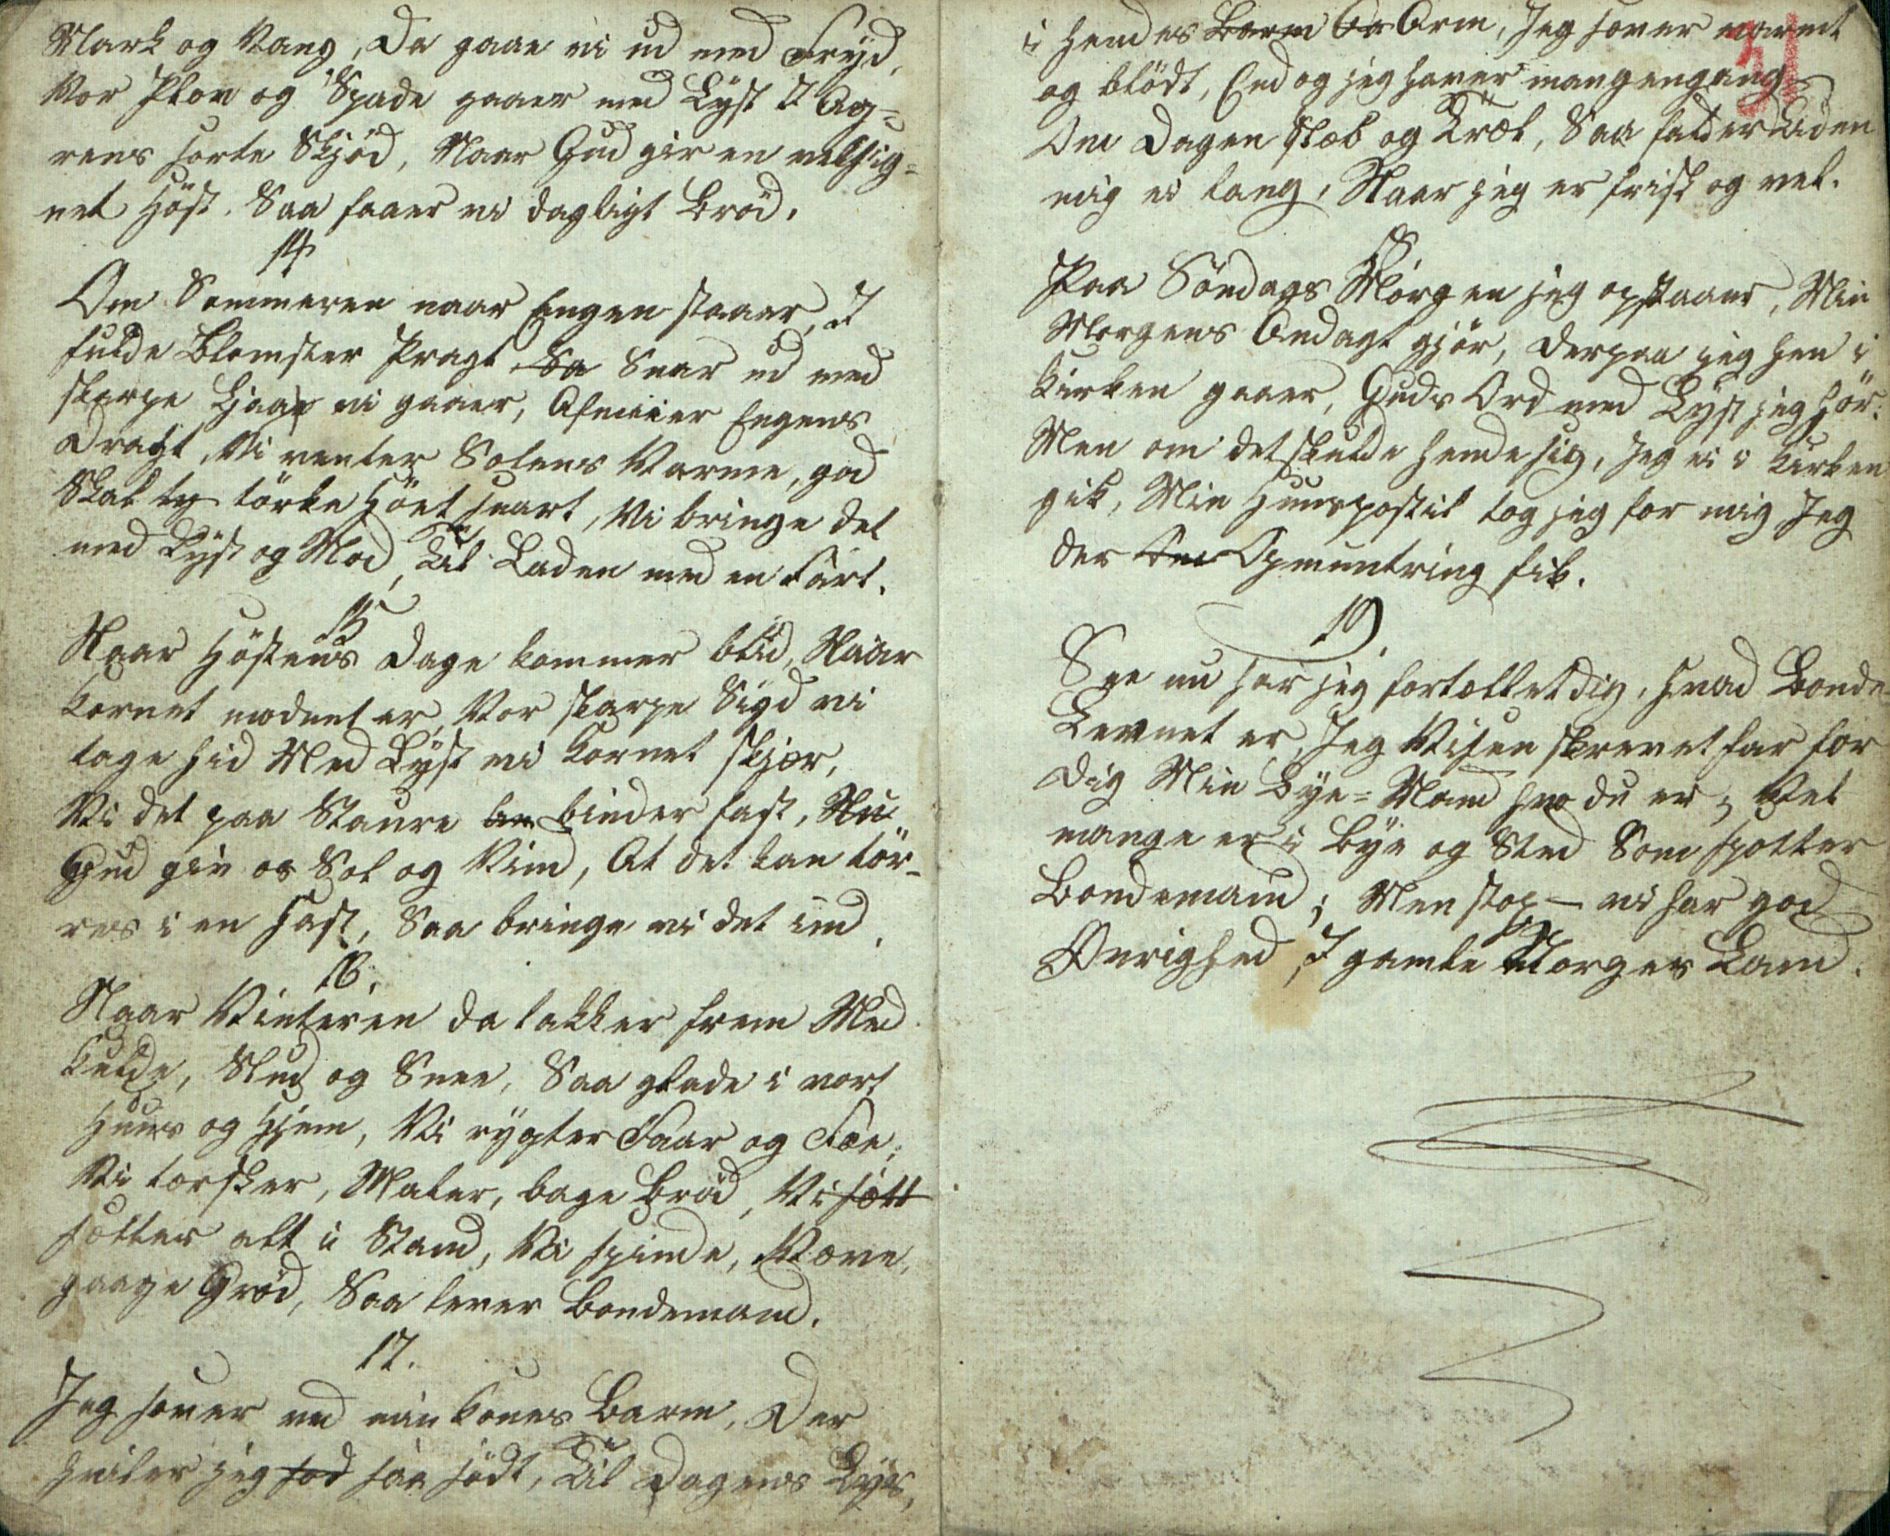 Mark og Vang, Da gaae vi ud med Fryd,
Vor Plov og Spade gaaer med Lyst I Ag-
rens sorte Skjöd, Naar Gud gir en velsig-
net Höst. Saa faaer vi dagligt Bröd.
14
Om Sommeren naar Engen staaer, I
fulde Blomster Pragt, Sa Snar ud med
skarpe Ljaaer vi gaaer, Afmeier Engens
Dragt, Vi venter Solens Varme, god
Skal ty törke Höet snart, Vi bringe det
med Lyst og Mod, Til Laden med en Fart.
15
Naar Höstens Dage kommer blid, Naar
Kornet modent er, Vor skarpe Sigd vi
tage hid Med Lyst vi Kornet skjær,
Vi det paa Staure be binder fast, Nu
Gud giv os Sol og Vind, At det kan tör-
res i en Hast, Saa bringe vi det ind.
16.
Naar Vinteren da lakker frem Med
Kulde, Slud og Snee, Saa glade i vort
Huus og Hjem, Vi rygter Faar og Fæe,
Vi tærsker, Maler, bage Bröd, Vi sætt
sætter alt i Stand, Vi spinde, Væve,
gaage Gröd, Saa lever Bondemand.
17.
Jeg sover ved min Kones Barm, Der
hviler jeg sød saa södt, Til Dagens Lyes,
i hendes Barm Ar Arm, Jeg sover varmt
og blödt, End og jeg haver mangengang
Om Dagen Slæb og Træl, Saa falder Tiden
mig ei lang, Naar jeg er frisk og vel.
18
Paa Söndags Morgen jeg opstaaer, Min
Morgens Andagt gjör, Derpaa jeg hen i
Kirken gaaer, Guds Ord med Lyst jeg hör.
Men om det skulde hende sig, Jeg ei i Kirken
gik, Min Huuspostil tog jeg for mig Jeg
der Om Opmuntring fik.
19
See nu har jeg fortællet dig, hvad Bonde-
Levnet er, Jeg Visen skrevet har for
dig Min Bye-Mand hvo du er; Vel
mange er i Bye og Sted Som spotter
Bondemand; Men stop - vi har god
Øvrighed, I gamle Norges Land.